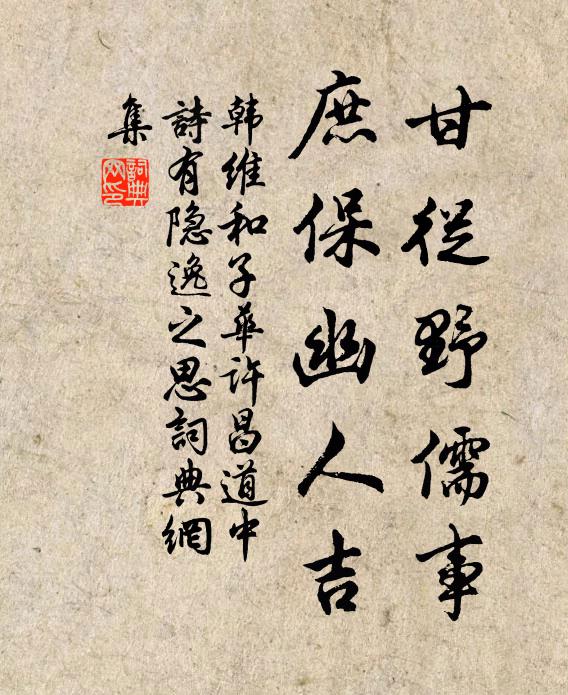 甘從野儒事
庶保幽人吉
韩维和子華許昌道中
詩有隐逸之思詞典網
集
詞典
网印